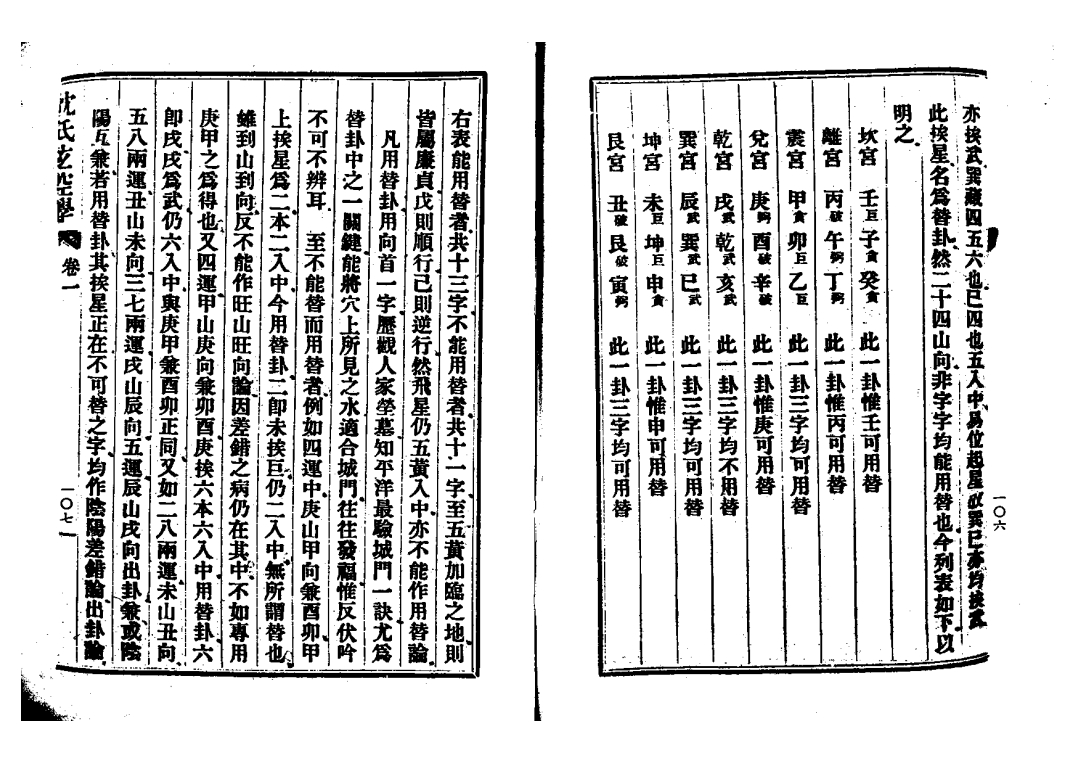 亦挨武巽巖四五六也巳四也五入中易位起星故巽巳亦均挨武
此挨星名為替卦然二十四山向非字字均能用替也今列表如下以
明之
坎宮 壬巨子貪癸貪 此一卦惟壬可用替
離宮 丙破午弼丁弼 此一卦惟丙可用替
震宮 甲貪卯巨乙巨 此一卦三字均可用替
兌宮 庚弼酉破辛破 此一卦惟庚可用替
乾宮 戌武乾武亥武 此一卦三字均不用替
巽宮 辰武巽武巳武 此一卦三字均可用替
坤宮 未巨坤巨申貪 此一卦惟申可用替
艮宮 丑破艮破寅弼 此一卦三字均可用替
一〇六
右表能用替者共十三字不能用替者共十一字至五黃加臨之地則
皆屬廉貞戊則順行己則逆行然飛星仍五黃入中亦不能作用替論
凡用替卦用向首一字歷觀人家塋墓知平洋最驗城門一訣尤為
替卦中之一關鍵能將穴上所見之水適合城門往往發福惟反伏吟
不可不辨耳 至不能替而用替者例如四運中庚山甲向兼酉卯甲
上挨星為二本二入中今用替卦二即未挨巨仍二入中無所謂替也
雖到山到向反不能作旺山旺向論因差錯之病仍在其中不如專用
庚甲之為得也又四運甲山庚向兼卯酉庚挨六本六入中用替卦六
即戌戌為武仍六入中與庚甲兼酉卯正同又如二八兩運未山丑向
五八兩運丑山未向三七兩運戌山辰向五運辰山戌向出卦兼或陰
陽互兼若用替卦其挨星正在不可替之字均作陰陽差錯論出卦論
沈氏玄空學 卷一
一〇七